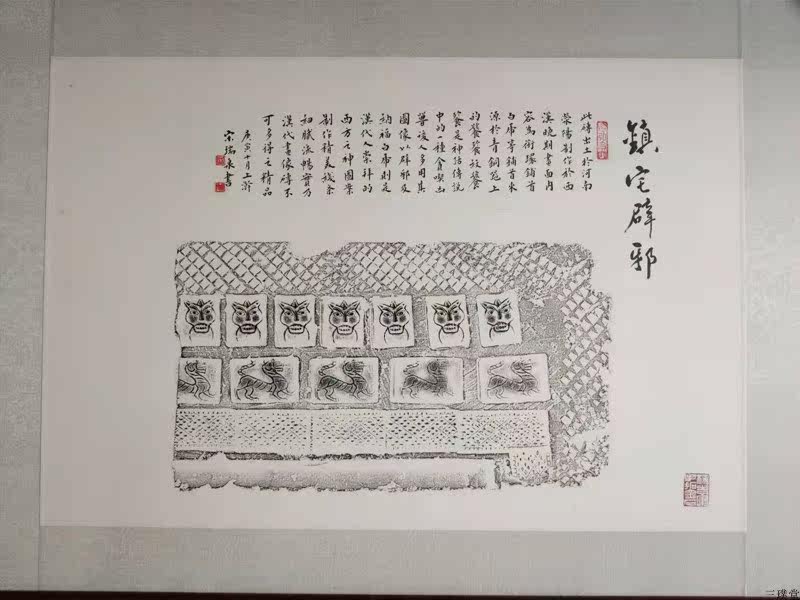 鎮宅辟邪
此磚出土於河南
滎陽制作於西
漢晚期畫面內
容為銜環鋪首
白虎等鋪首來
源於青銅器上
的饕餮紋饕
餮是神話傳說
中的一種貪喫凶
獸後人多用其
圖像以辟邪及
納福白虎則是
漢代人崇拜的
西方之神圖案
制作精美綫条
細膩流暢實乃
漢代畫像磚不
可多得之精品
庚寅十月上澣
宋瑞 書
三璞堂